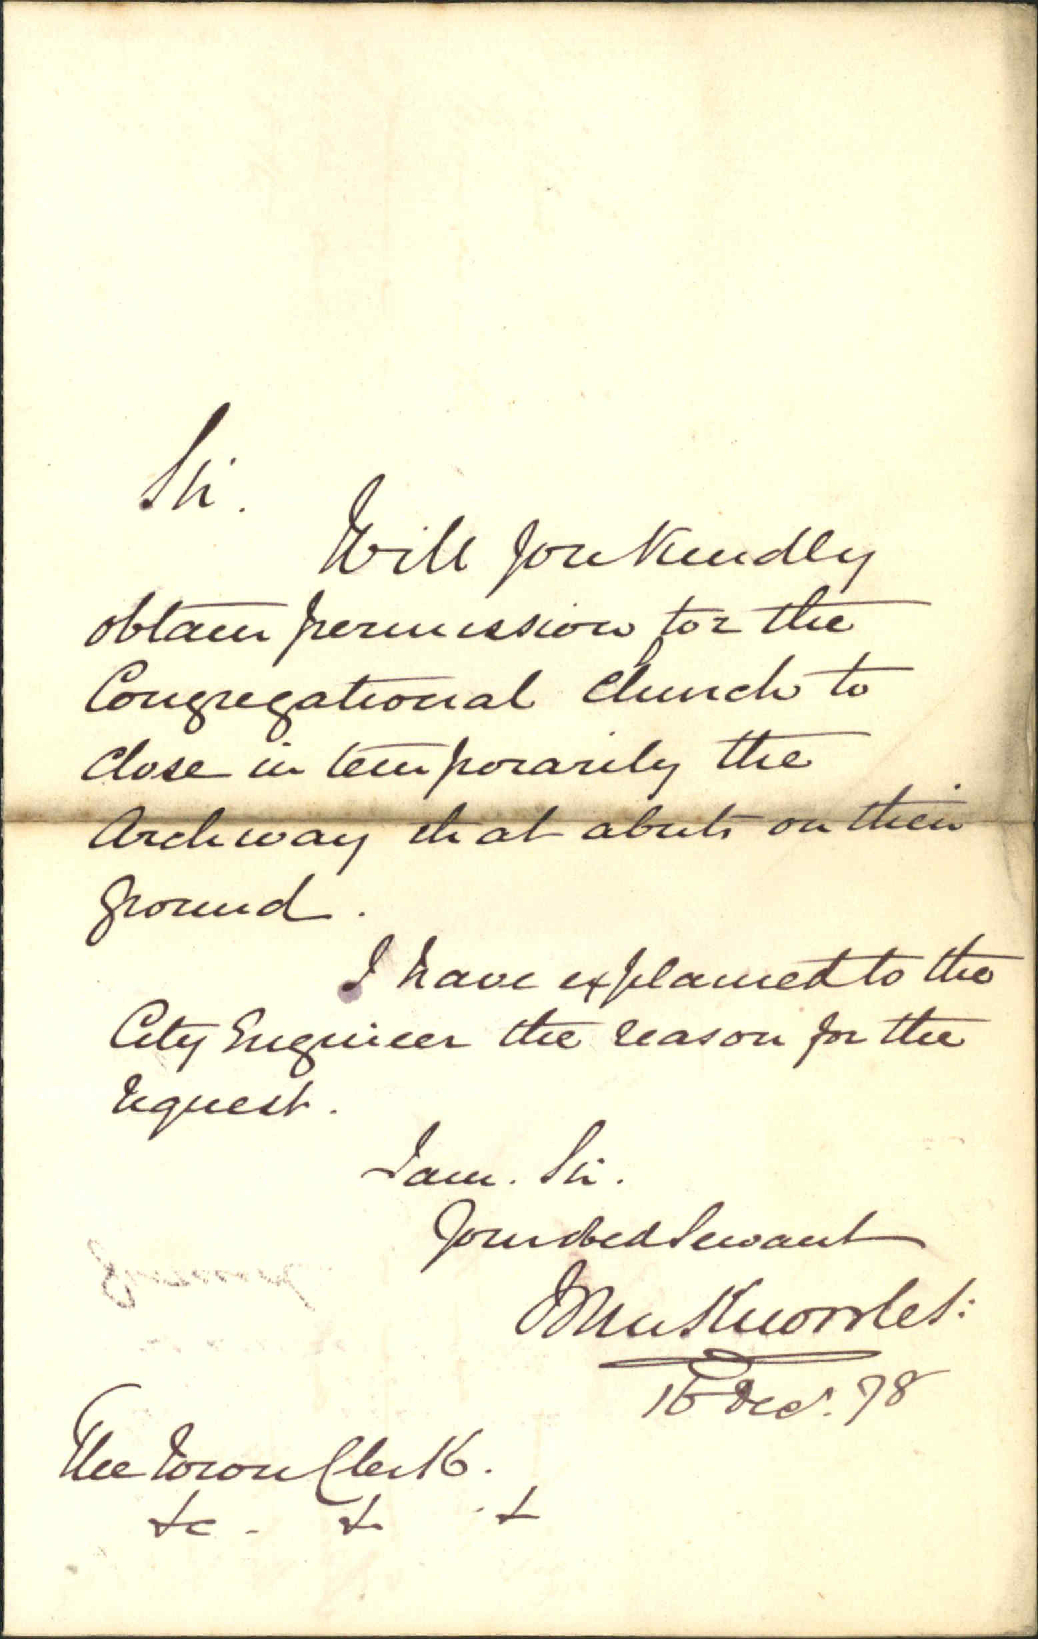 Sir.
Will you Kindly
obtain permission for the
Congregational Church to
close in temporarily the
Archway that abuts on their
ground.
I have explained to the
City Engineer the reason for the
request.
I am. Sir.
Your obed Servant
Knowles:
Dec. 78
The Town Clerk.
&c. & &